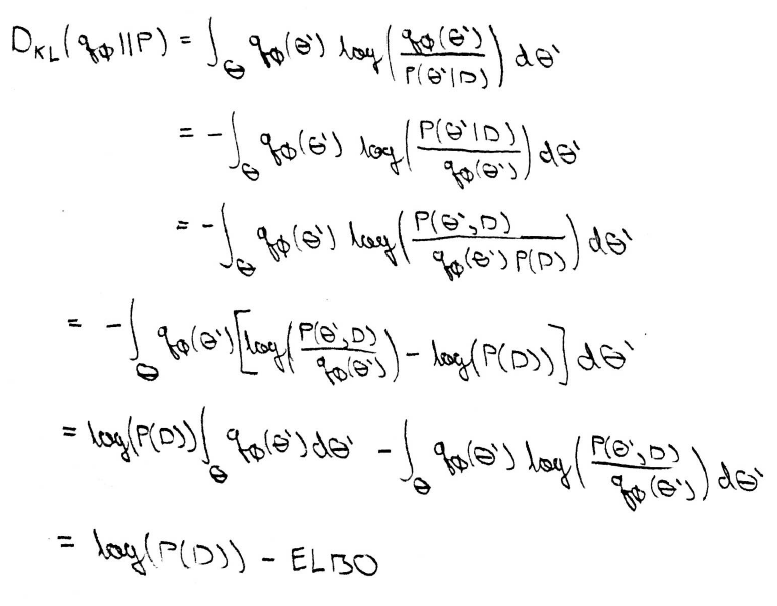 D_KL(q_φ||P) = ∫_Θ q_φ(θ') log(q_φ(θ')/P(θ'|D)) dθ'
= -∫_Θ q_φ(θ') log(P(θ'|D)/q_φ(θ')) dθ'
= -∫_Θ q_φ(θ') log(P(θ',D)/(q_φ(θ') P(D))) dθ'
= -∫_Θ q_φ(θ')[log(P(θ',D)/q_φ(θ')) - log(P(D))] dθ'
= log(P(D)) ∫_Θ q_φ(θ') dθ' - ∫_Θ q_φ(θ') log(P(θ',D)/q_φ(θ')) dθ'
= log(P(D)) - ELBO